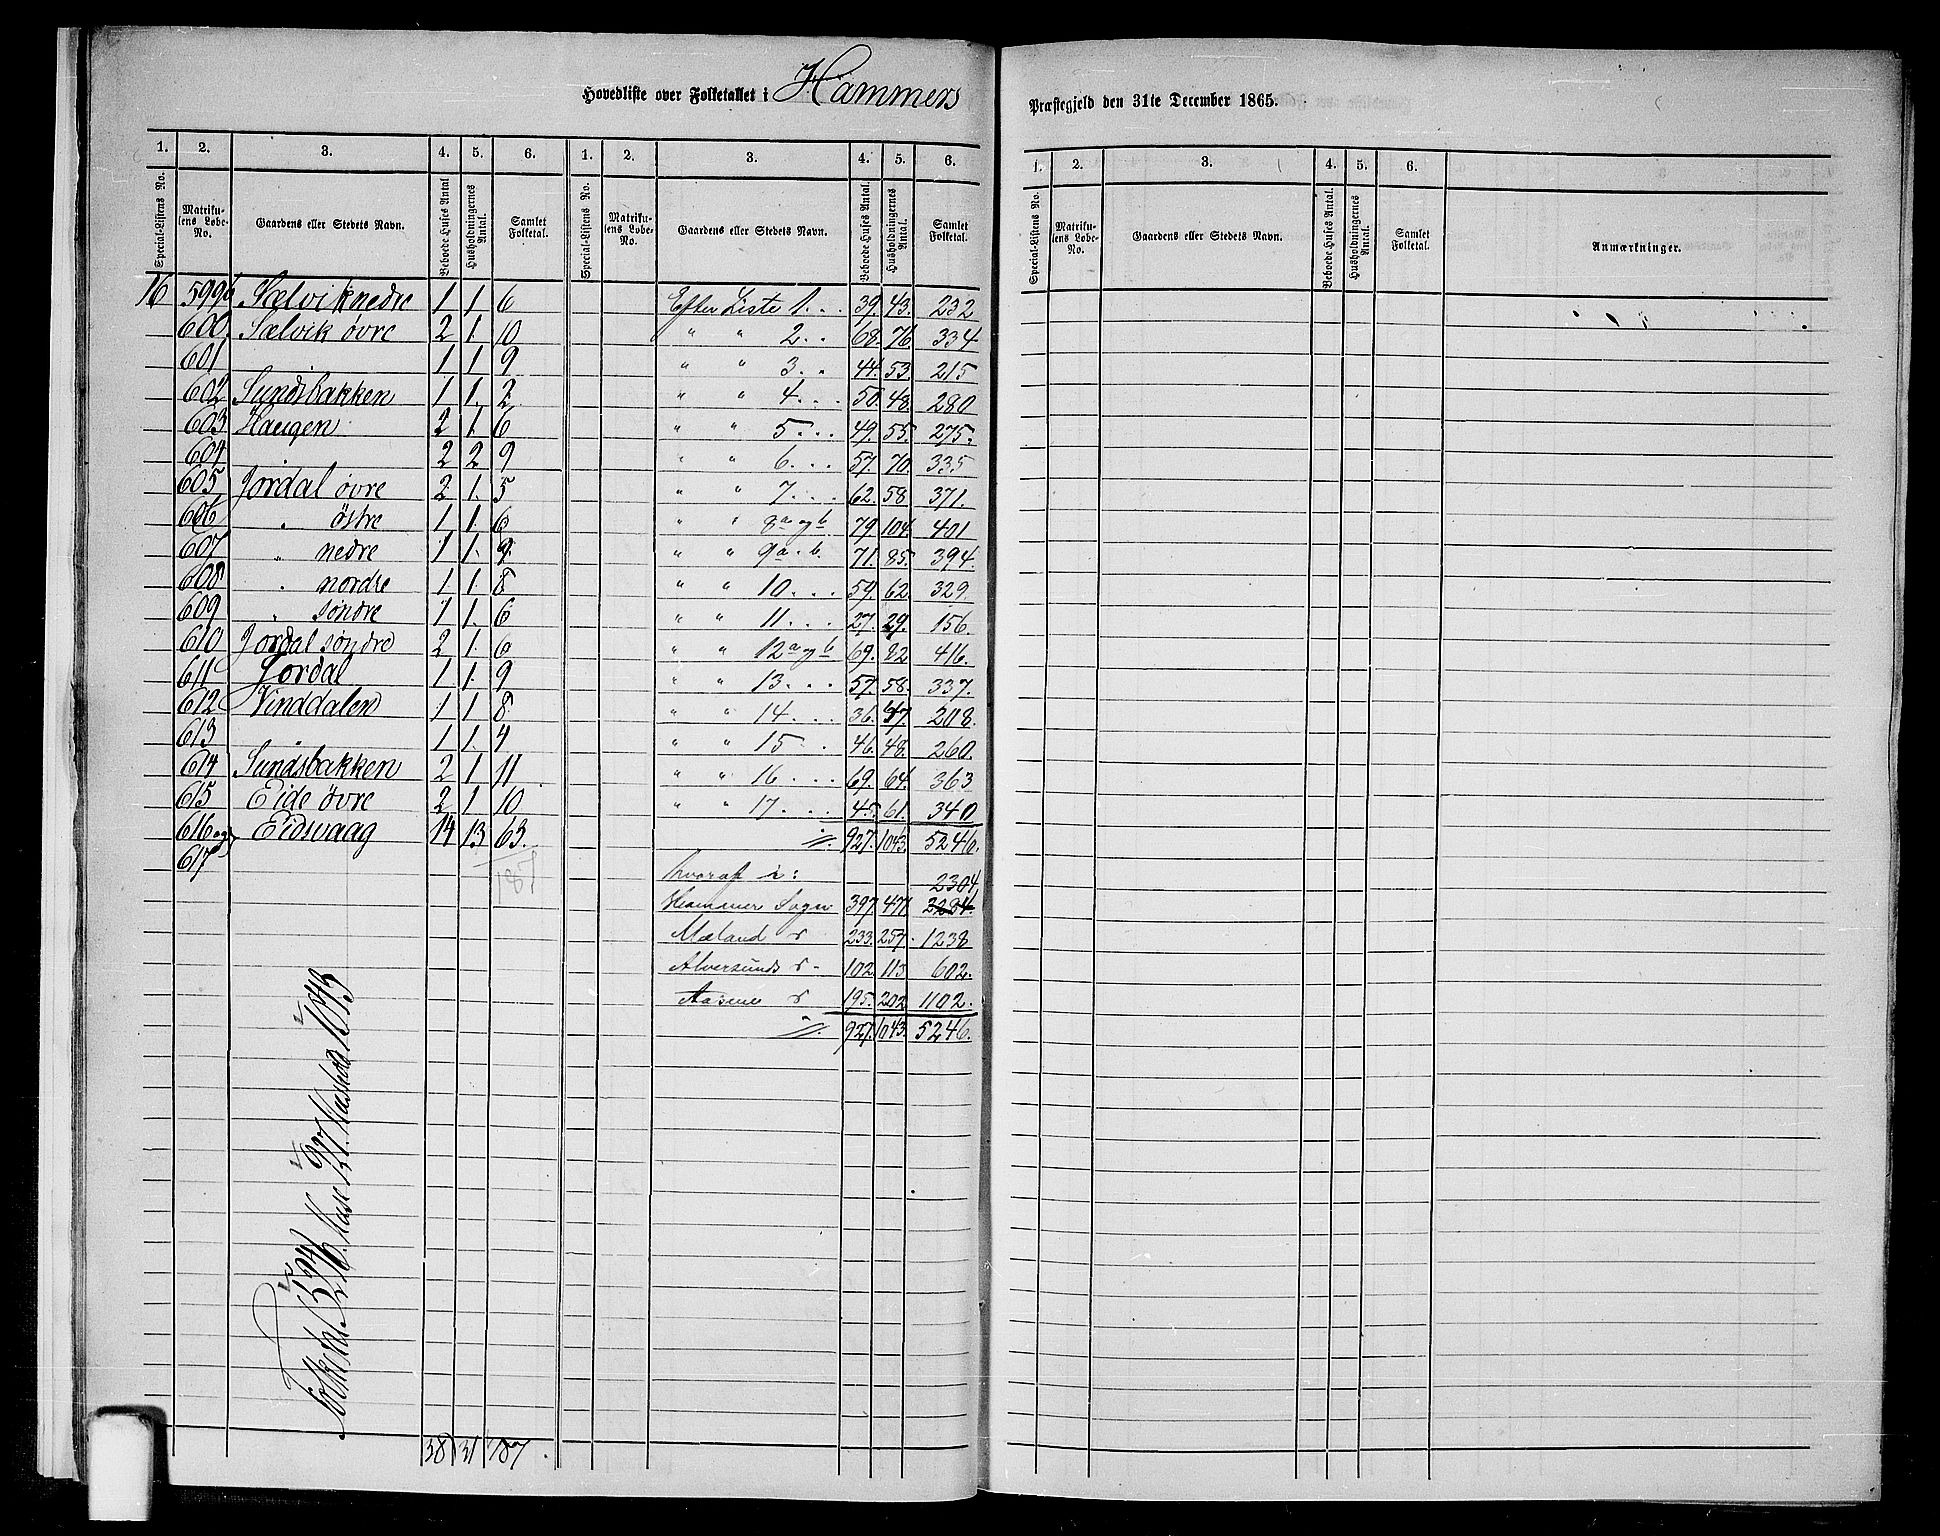 Hovedliste over Folketallet i Hammers
Præstegjeld den 31te December 1865.
1. 2. 3. 4. 5. 6. 1. 2. 3. 4. 5. 6.
Special-Listens No. Matrikulens Løbe-No. Gaardens eller Stedets Navn. Beboede Huses Antal Husholdningernes Antal. Samlet Folketal. Special-Listens No. Matrikulens Løbe-No. Gaardens eller Stedets Navn. Beboede Huses Antal. Husholdningernes Antal. Samlet Folketal.
16 599b Sælvik nedre 1 1. 6
600 Sælvik øvre 2 1. 10
601 1 1 9
602 Sundsbakken 1 1. 2
603 Haugen 2 1. 6
604 2 2 9
605 Jordal øvre 2 1. 5
606 " østre 1 1. 6
607 " nedre 1 1. 9
608 " nordre 1 1. 8
609 " søndre 1 1. 6
610 Jordal søndre 2 1. 6
611 Jordal 1 1. 9
612 Vinddalen 1 1. 8
613 1 1. 4
614 Sundsbakken 2 1 11
615 Eide øvre 2 1 10
616 og Eidsvaag 14 13 63.
617
187
38 31 187.
Efter Liste 1... 39. 43. 232
" " 2.. 68. 76. 334
" " 3.. 44. 53. 215
" " 4... 50. 48. 280
" " 5... 49. 55. 275.
" " 6... 57. 70. 335
" " 7... 62. 58 371.
" " 8a og b 79. 104. 401
" " 9a. b. 71. 85. 394.
" " 10... 59. 62. 329.
" " 11... 27. 29. 156.
" " 12a og b 69. 82 416.
" " 13... 57. 58. 337.
" " 14... 36. 47. 208.
" " 15.. 46. 48. 260.
" " 16... 69. 64. 363
" " 17.... 45. 61. 340
927. 1043. 5246.
hvoraf i:
2304,
Hammer Sogn 397. 471. 2284.
Mæland s 233. 257. 1238
Alversunds s - 102 113 602.
Aasene s 195. 202 1102.
927. 1043. 5246.
1. 2. 3. 4. 5. 6.
Special-Listens No. Matrikulens Løbe-No. Gaardens eller Stedets Navn. Beboede Huses Antal. Husholdningernes Antal. Samlet Folketal. Anmærkninger.